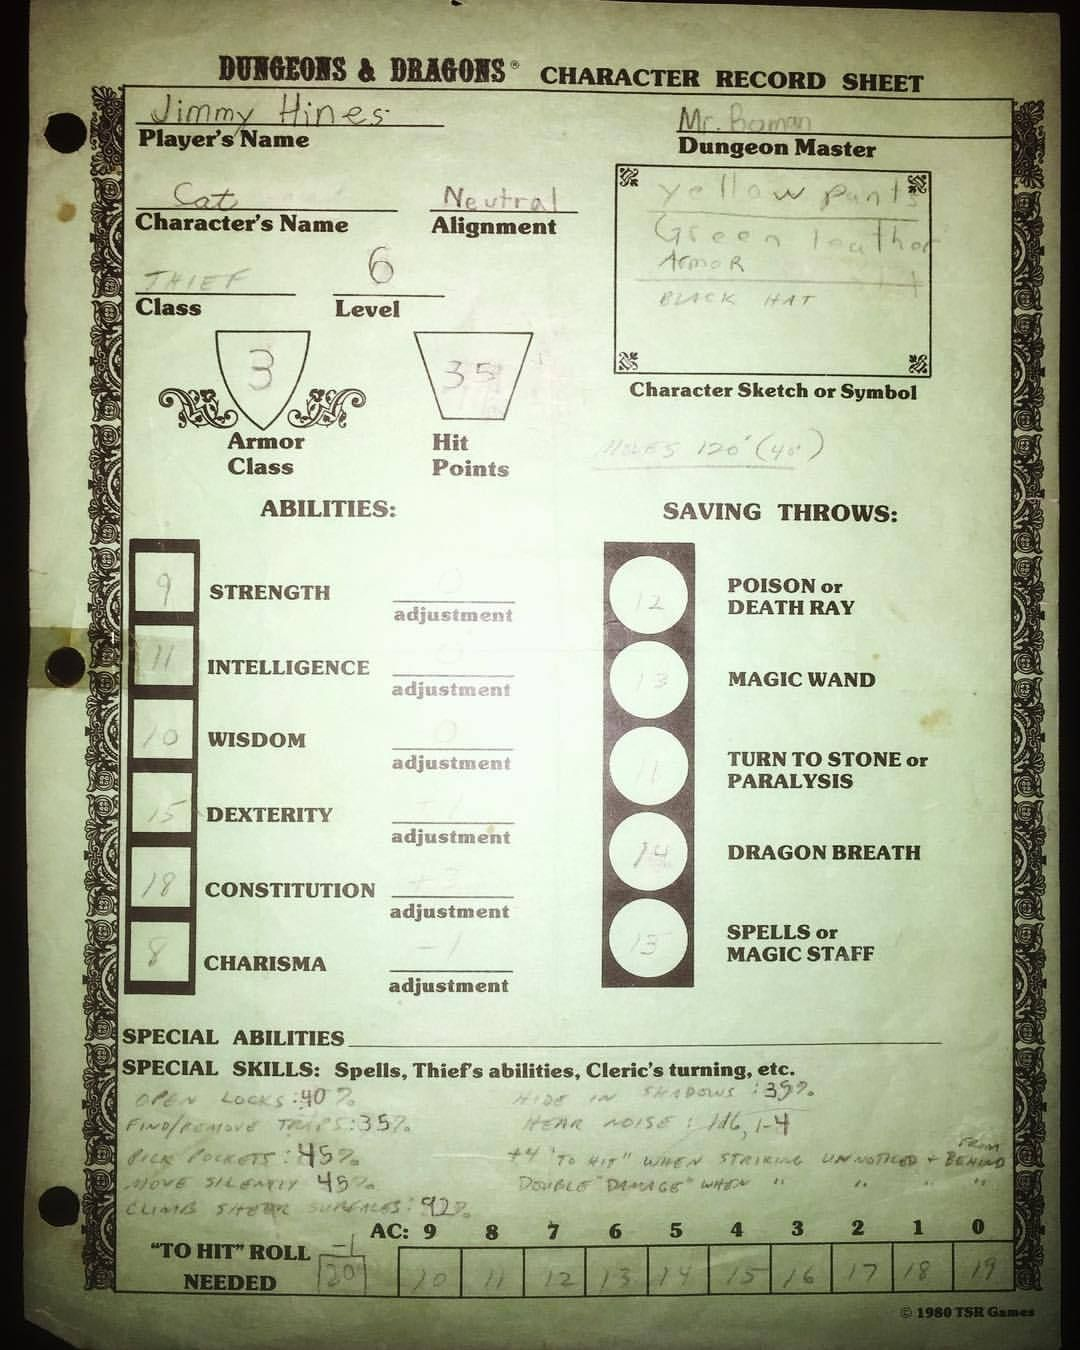 DUNGEONS & DRAGONS® CHARACTER RECORD SHEET
Jimmy Hines
Player's Name
Mr. Roman
Dungeon Master
Cat
Character's Name
Neutral
Alignment
yellow pants
Green leather
Armor
BLACK HAT
Character Sketch or Symbol
THIEF
Class
6
Level
3
Armor
Class
35
Hit
Points
MOVES 120' (40')
ABILITIES:
9 STRENGTH 0
adjustment
11 INTELLIGENCE 0
adjustment
10 WISDOM 0
adjustment
15 DEXTERITY +1
adjustment
18 CONSTITUTION
adjustment
8 CHARISMA -1
adjustment
SAVING THROWS:
12 POISON or
DEATH RAY
13 MAGIC WAND
11 TURN TO STONE or
PARALYSIS
14 DRAGON BREATH
13 SPELLS or
MAGIC STAFF
SPECIAL ABILITIES
SPECIAL SKILLS: Spells, Thief's abilities, Cleric's turning, etc.
OPEN LOCKS: 40%
FIND/REMOVE TRAPS: 35%
PICK POCKETS: 45%
MOVE SILENTLY 45%
CLIMB SHEER SURFACES: 92%
HIDE IN SHADOWS :
HEAR NOISE: 1d6, 1-4
+4 "TO HIT" WHEN STRIKING UNNOTICED + FROM BEHIND
DOUBLE "DAMAGE" WHEN " " " "
AC: 9 8 7 6 5 4 3 2 1 0
"TO HIT" ROLL -1
NEEDED 20 10 11 12 13 14 15 16 17 18 19
© 1980 TSR Games